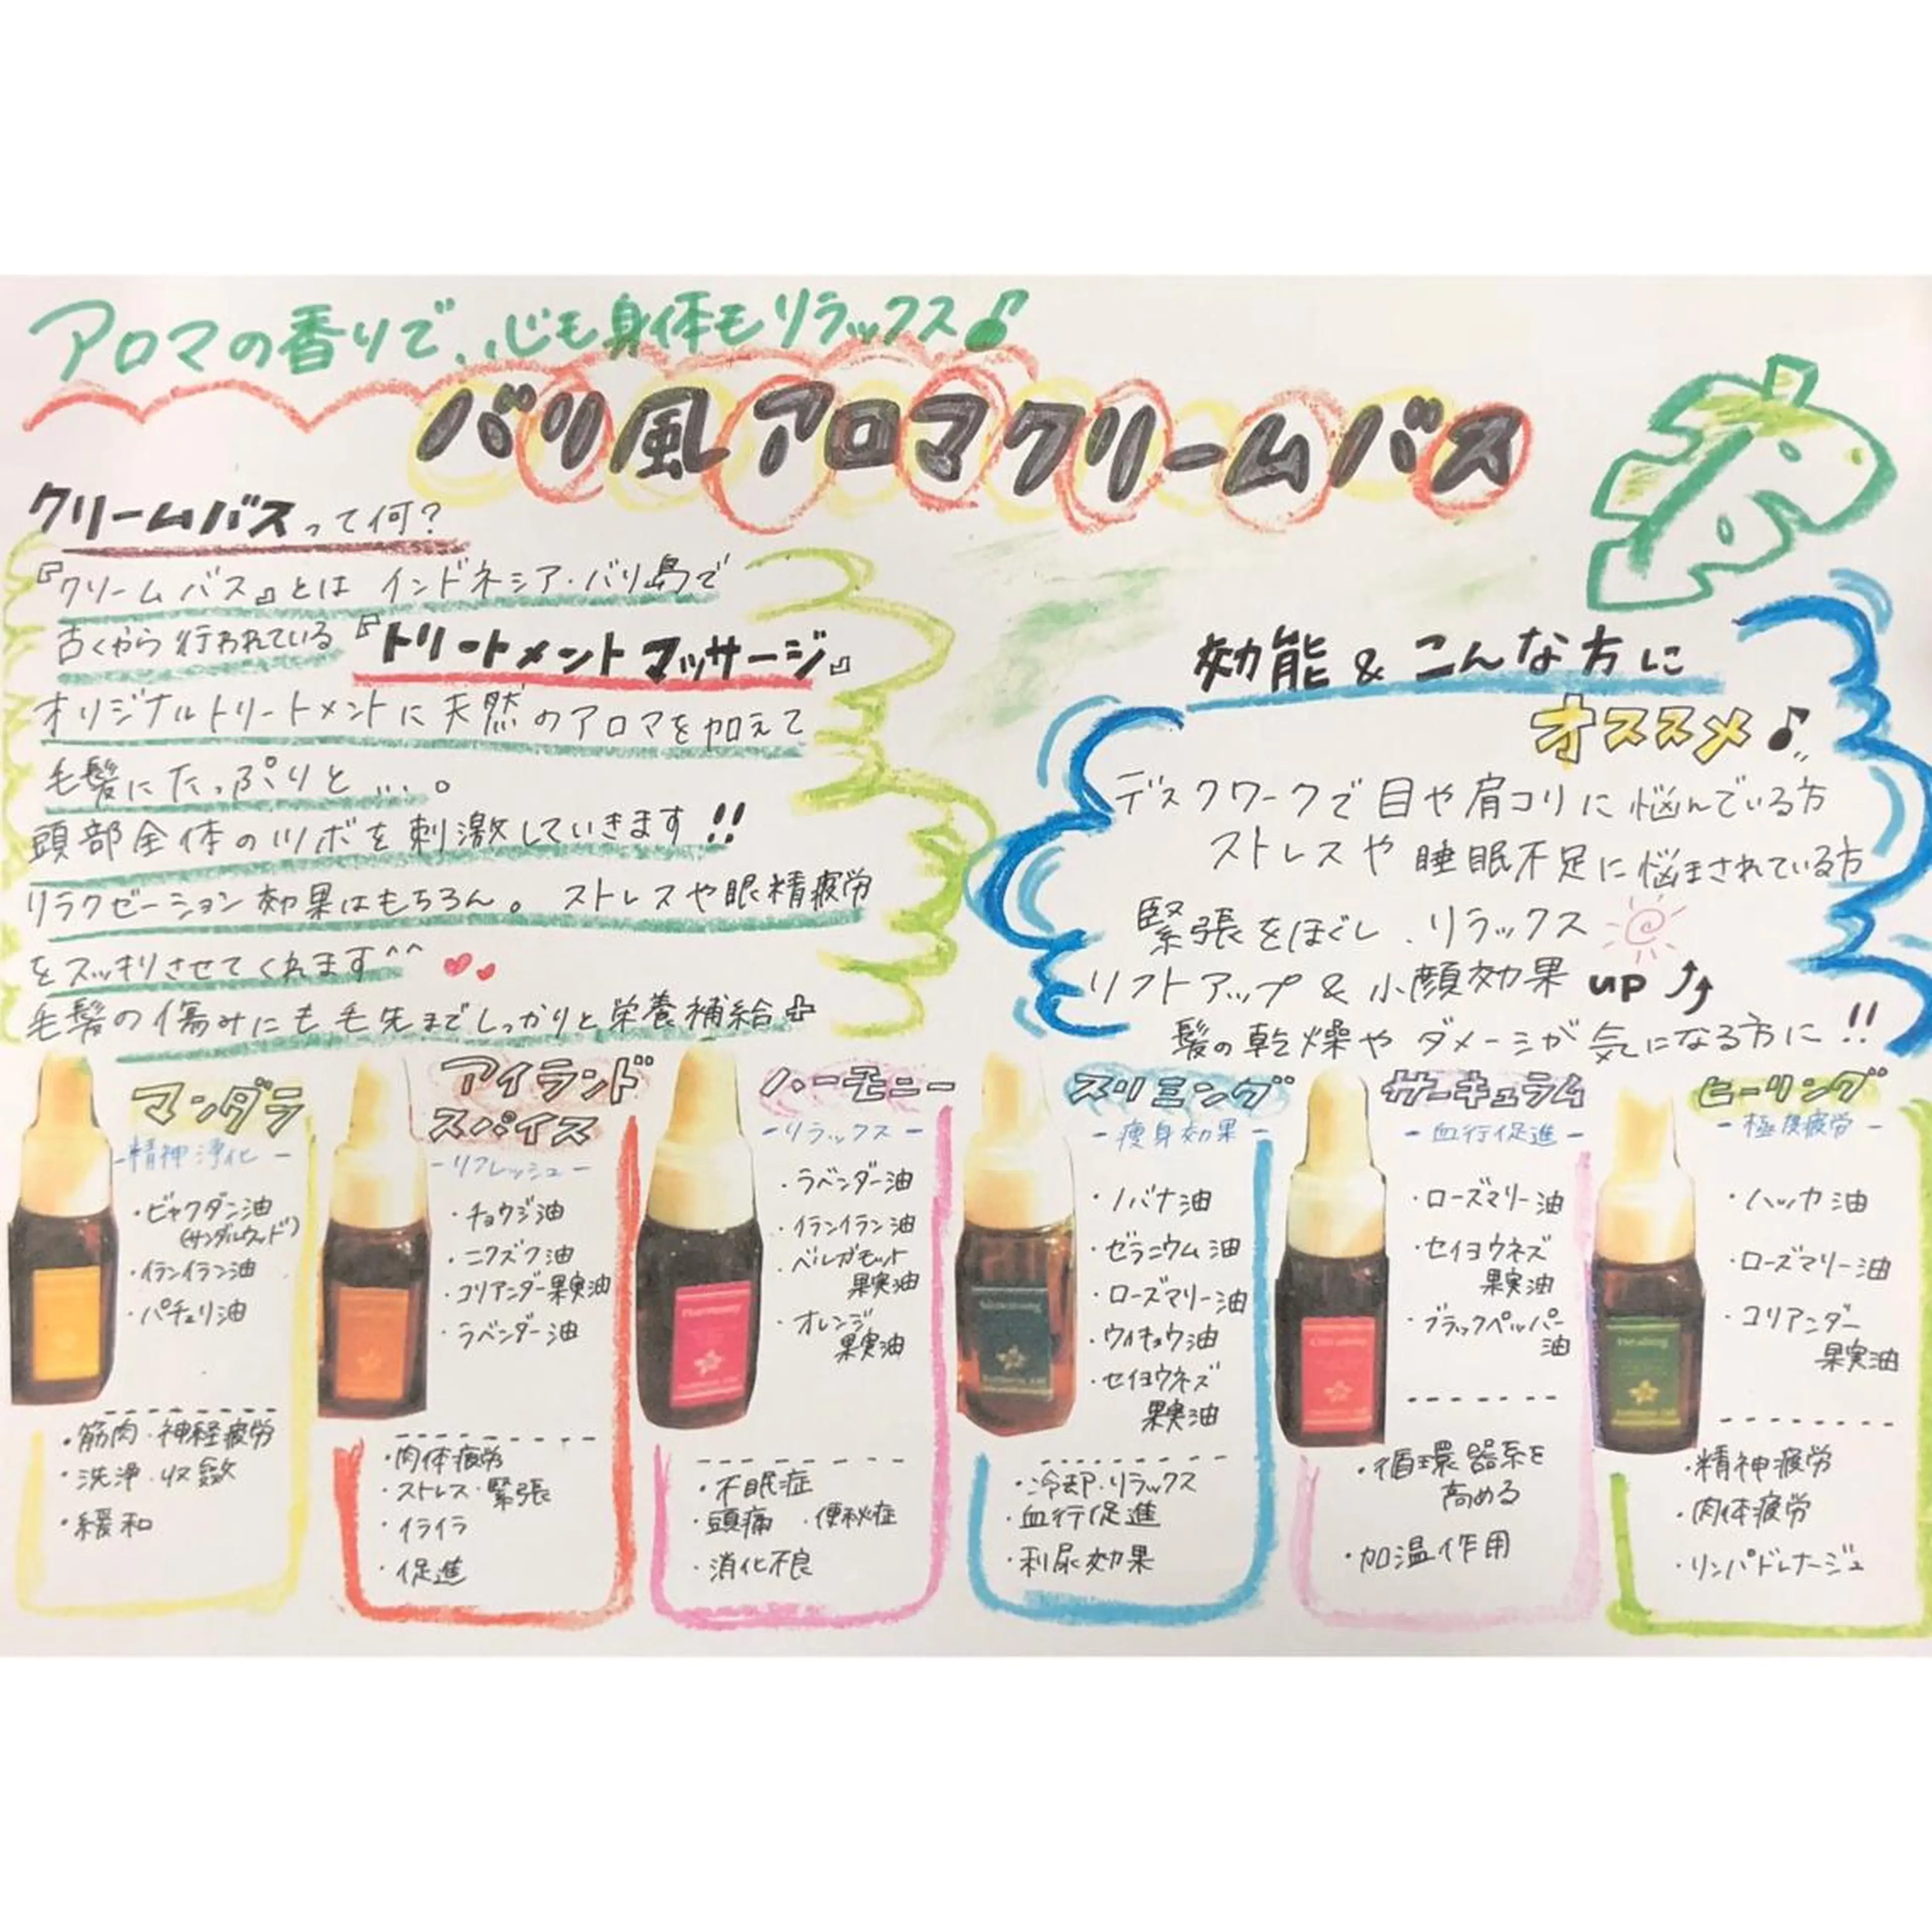 アロマの香りで、、心も身体もリラックス♪
バリ風アロマクリームバス
クリームバスって何?
『クリームバス』とは インドネシア・バリ島で
古くから行われている『トリートメントマッサージ』
オリジナルトリートメントに天然のアロマを加えて
毛髪にたっぷりと...。
頭部全体のツボを刺激していきます!!
リラクゼーション効果はもちろん。ストレスや眼精疲労
をスッキリさせてくれます^^
毛髪の傷みにも毛先までしっかりと栄養補給+
効能&こんな方に
オススメ♪
デスクワークで目や肩コリに悩んでいる方
ストレスや睡眠不足に悩まされている方
緊張をほぐし、リラックス
リフトアップ&小顔効果 up
髪の乾燥やダメージが気になる方に!!
マンダラ
-精神浄化-
・ビャクダン油
(サンダルウッド)
・イランイラン油
・パチュリ油
・筋肉・神経疲労
・洗浄・収斂
・緩和
アイランド
スパイス
-リフレッシュ-
・チョウジ油
・ニクズク油
・コリアンダー果実油
・ラベンダー油
・肉体疲労
・ストレス・緊張
・イライラ
・促進
ハーモニー
-リラックス-
・ラベンダー油
・イランイラン油
・ベルガモット
果実油
・オレンジ
果実油
・不眠症
・頭痛 ・便秘症
・消化不良
スリミング
-痩身効果-
・ノバナ油
・ゼラニウム油
・ローズマリー油
・ウイキョウ油
・セイヨウネズ
果実油
・冷却・リラックス
・血行促進
・利尿効果
サーキュラム
-血行促進-
・ローズマリー油
・セイヨウネズ
果実油
・ブラックペッパー
油
・循環器系を
高める
・加温作用
ヒーリング
-極度疲労-
・ハッカ油
・ローズマリー油
・コリアンダー
果実油
・精神疲労
・肉体疲労
・リンパドレナージュ